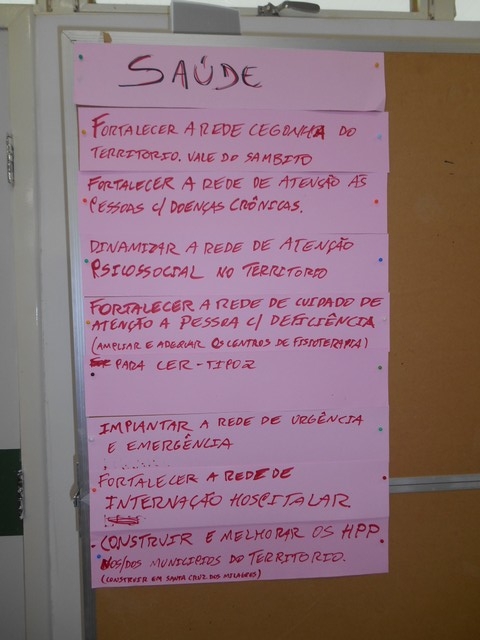 SAÚDE
FORTALECER A REDE CEGONHA DO
TERRITORIO. VALE DO SAMBITO
FORTALECER A REDE DE ATENÇÃO ÀS
PESSOAS C/ DOENÇAS CRÔNICAS.
DINAMIZAR A REDE DE ATENÇÃO
PSICOSSOCIAL NO TERRITORIO
FORTALECER A REDE DE CUIDADO DE
ATENÇÃO A PESSOA C/ DEFICIÊNCIA
(AMPLIAR E ADEQUAR OS CENTROS DE FISIOTERAPIA)
PARA CER-TIPO 2
IMPLANTAR A REDE DE URGÊNCIA
E EMERGÊNCIA
FORTALECER A REDE DE
INTERNAÇÃO HOSPITALAR
CONSTRUIR E MELHORAR OS HPP
NOS/DOS MUNICIPIOS DO TERRITORIO.
(CONSTRUIR EM SANTA CRUZ DOS MILAGRES)